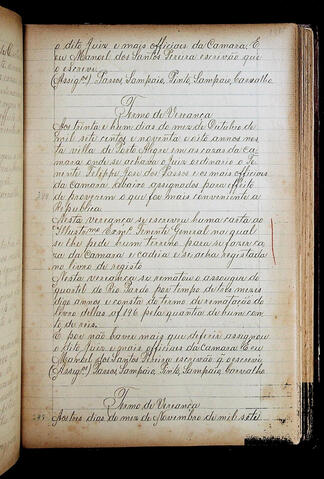 o dito Juiz e mais officiaes da Camara. E
eu Manoel dos Santos Pereira escrivão que
o escrevi.
(Assigrs) Passos, Sampaio, Pinto, Sampaio, Carvalho.
Termo de Vereança
Aos trinta e hum dias do mez de Outubro de
mil sete centos e noventa e oito annos nes
ta villa de Porto Alegre em as cazas da Ca
mara onde se achava o Juiz ordinario o Te
nente Felippe Jose dos Passos e os mais officiaes
da Camara abaixo assignados para effeito
de proverem o que for mais conveniente a
Republica.
Nesta vereança se escreveu huma carta ao
Illustrmo Exmo Tenente General na qual
se lhe pede hum terreno para se fazer ca
za da Camara e cadeia e se acha registada
no livro de registo
Nesta vereança se rematou o assougue do
quartel do Rio Pardo por tempo de tres mezes
digo annos e consta do termo de rematação do
livro dellas af 196 pela quantia de hum con
to de reis.
E por não haver mais que deferir assignou
o dito Juiz e mais officiaes da Camara. E eu
Manoel dos Santos Pereira escrivão q escrevi.
(Assigrs) Passos, Sampaio, Pinto, Sampaio, Carvalho.
Termo de Vereança
Aos tres dias do mez de Novembro de mil sete